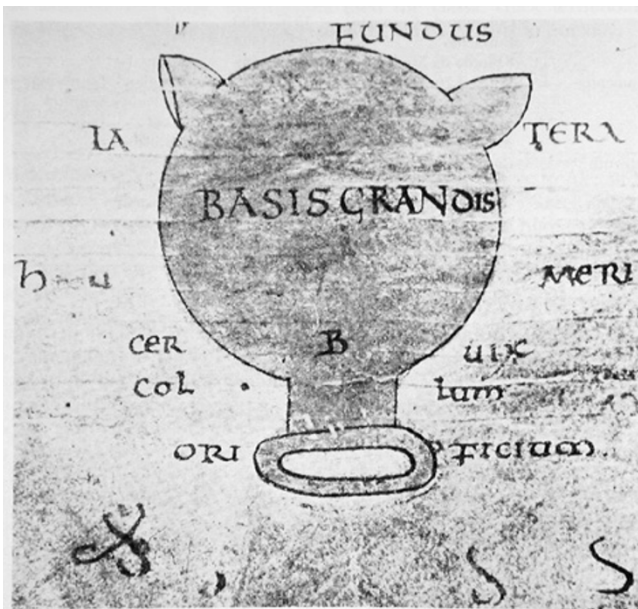 FUNDUS
LA TERA
BASIS GRANDIS
h u MERI
CER B UIX
COL lum
ORI FICIUM